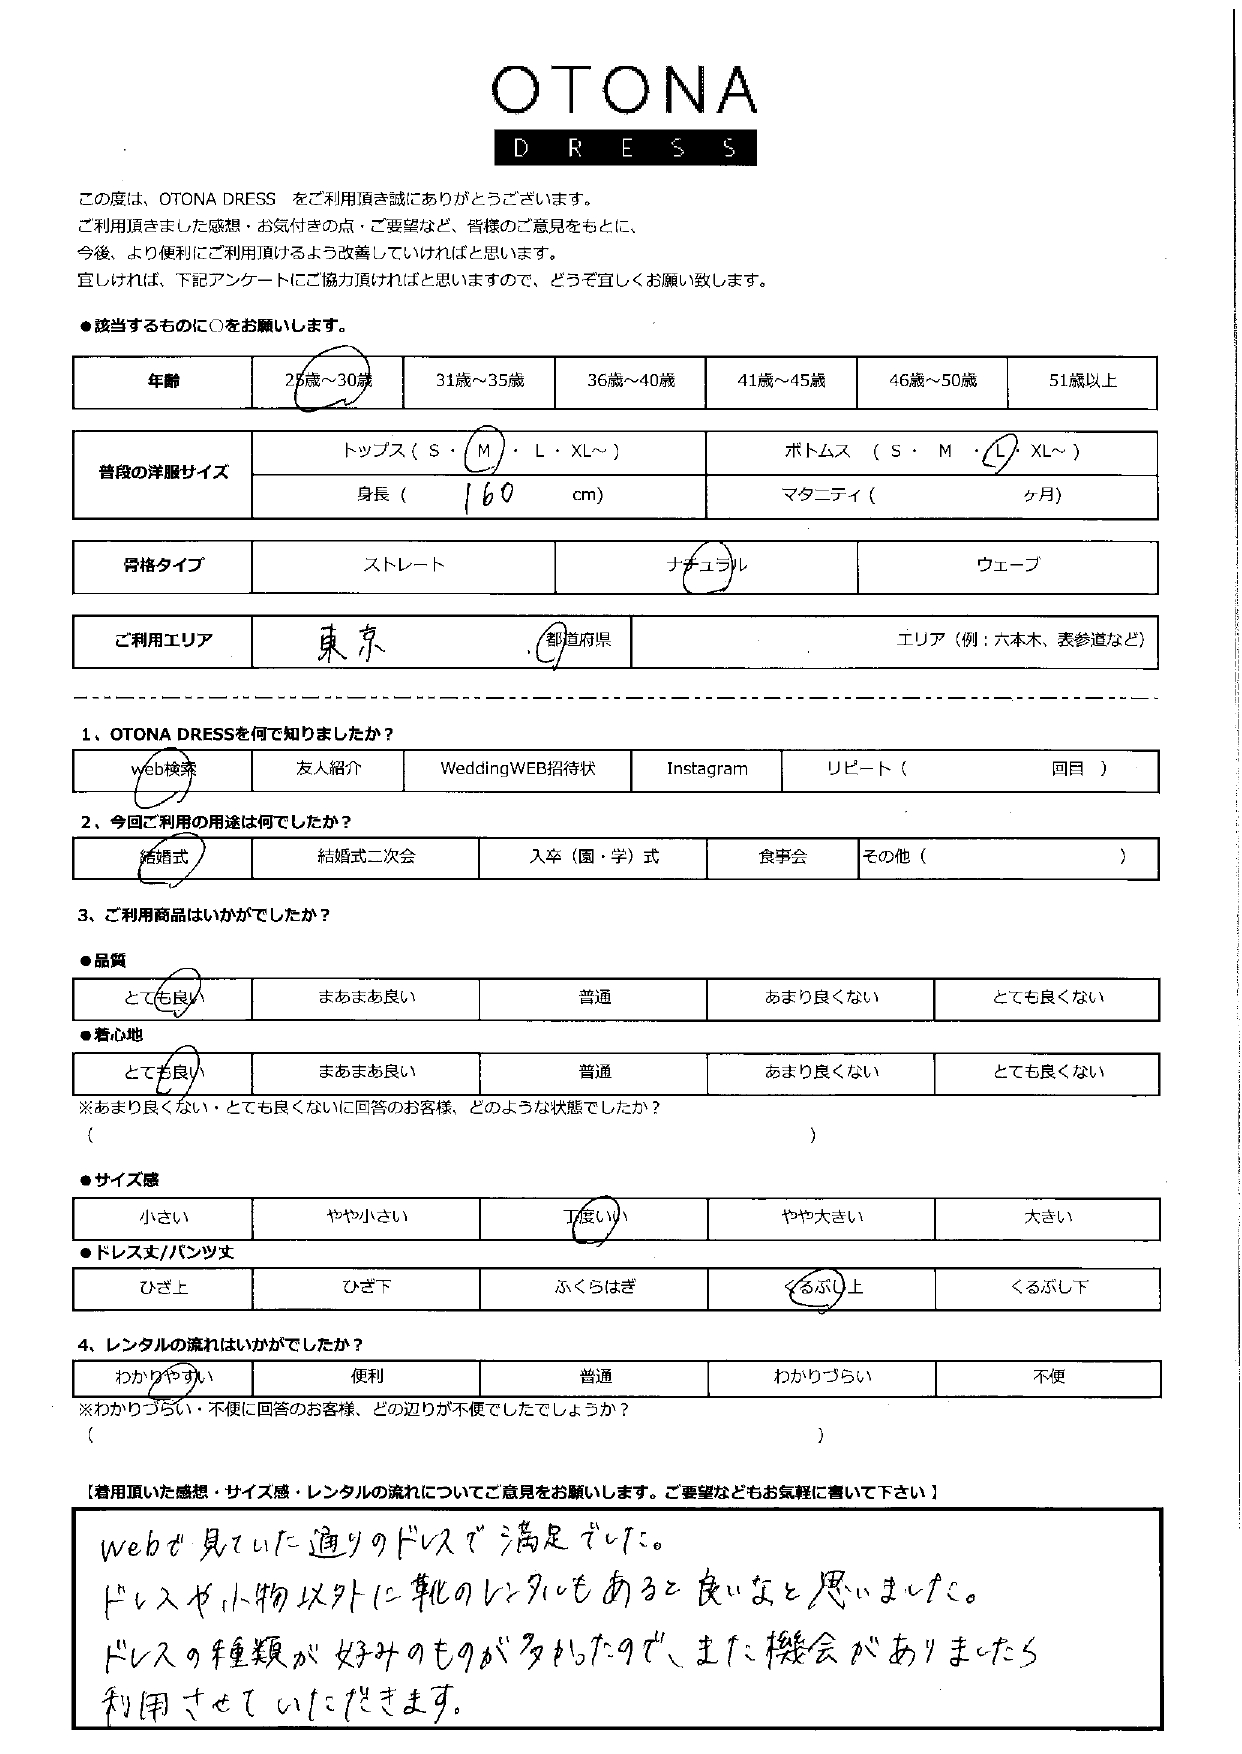 OTONA
DRESS
この度は、OTONA DRESS をご利用頂き誠にありがとうございます。
ご利用頂きました感想・お気付きの点・ご要望など、皆様のご意見をもとに、
今後、より便利にご利用頂けるよう改善していければと思います。
宜しければ、下記アンケートにご協力頂ければと思いますので、どうぞ宜しくお願い致します。
●該当するものに○をお願いします。
年齢 25歳～30歳 31歳～35歳 36歳～40歳 41歳～45歳 46歳～50歳 51歳以上
普段の洋服サイズ トップス ( S ・ M ・ L ・ XL～ ) ボトムス ( S ・ M ・ L ・ XL～ )
身長 ( 160 cm) マタニティ ( ヶ月)
骨格タイプ ストレート ナチュラル ウェーブ
ご利用エリア 東京 都道府県 エリア（例：六本木、表参道など）
1、OTONA DRESSを何で知りましたか？
web検索 友人紹介 WeddingWEB招待状 Instagram リピート（ 回目 ）
2、今回ご利用の用途は何でしたか？
結婚式 結婚式二次会 入卒（園・学）式 食事会 その他（ ）
3、ご利用商品はいかがでしたか？
●品質
とても良い まあまあ良い 普通 あまり良くない とても良くない
●着心地
とても良い まあまあ良い 普通 あまり良くない とても良くない
※あまり良くない・とても良くないに回答のお客様、どのような状態でしたか？
（ ）
●サイズ感
小さい やや小さい 丁度いい やや大きい 大きい
●ドレス丈/パンツ丈
ひざ上 ひざ下 ふくらはぎ くるぶし上 くるぶし下
4、レンタルの流れはいかがでしたか？
わかりやすい 便利 普通 わかりづらい 不便
※わかりづらい・不便に回答のお客様、どの辺りが不便でしたでしょうか？
（ ）
【着用頂いた感想・サイズ感・レンタルの流れについてご意見をお願いします。ご要望などもお気軽に書いて下さい】
webで見ていた通りのドレスで満足でした。
ドレスや小物以外に靴のレンタルもあると良いなと思いました。
ドレスの種類が好みのものが多かったので、また機会がありましたら
利用させていただきます。